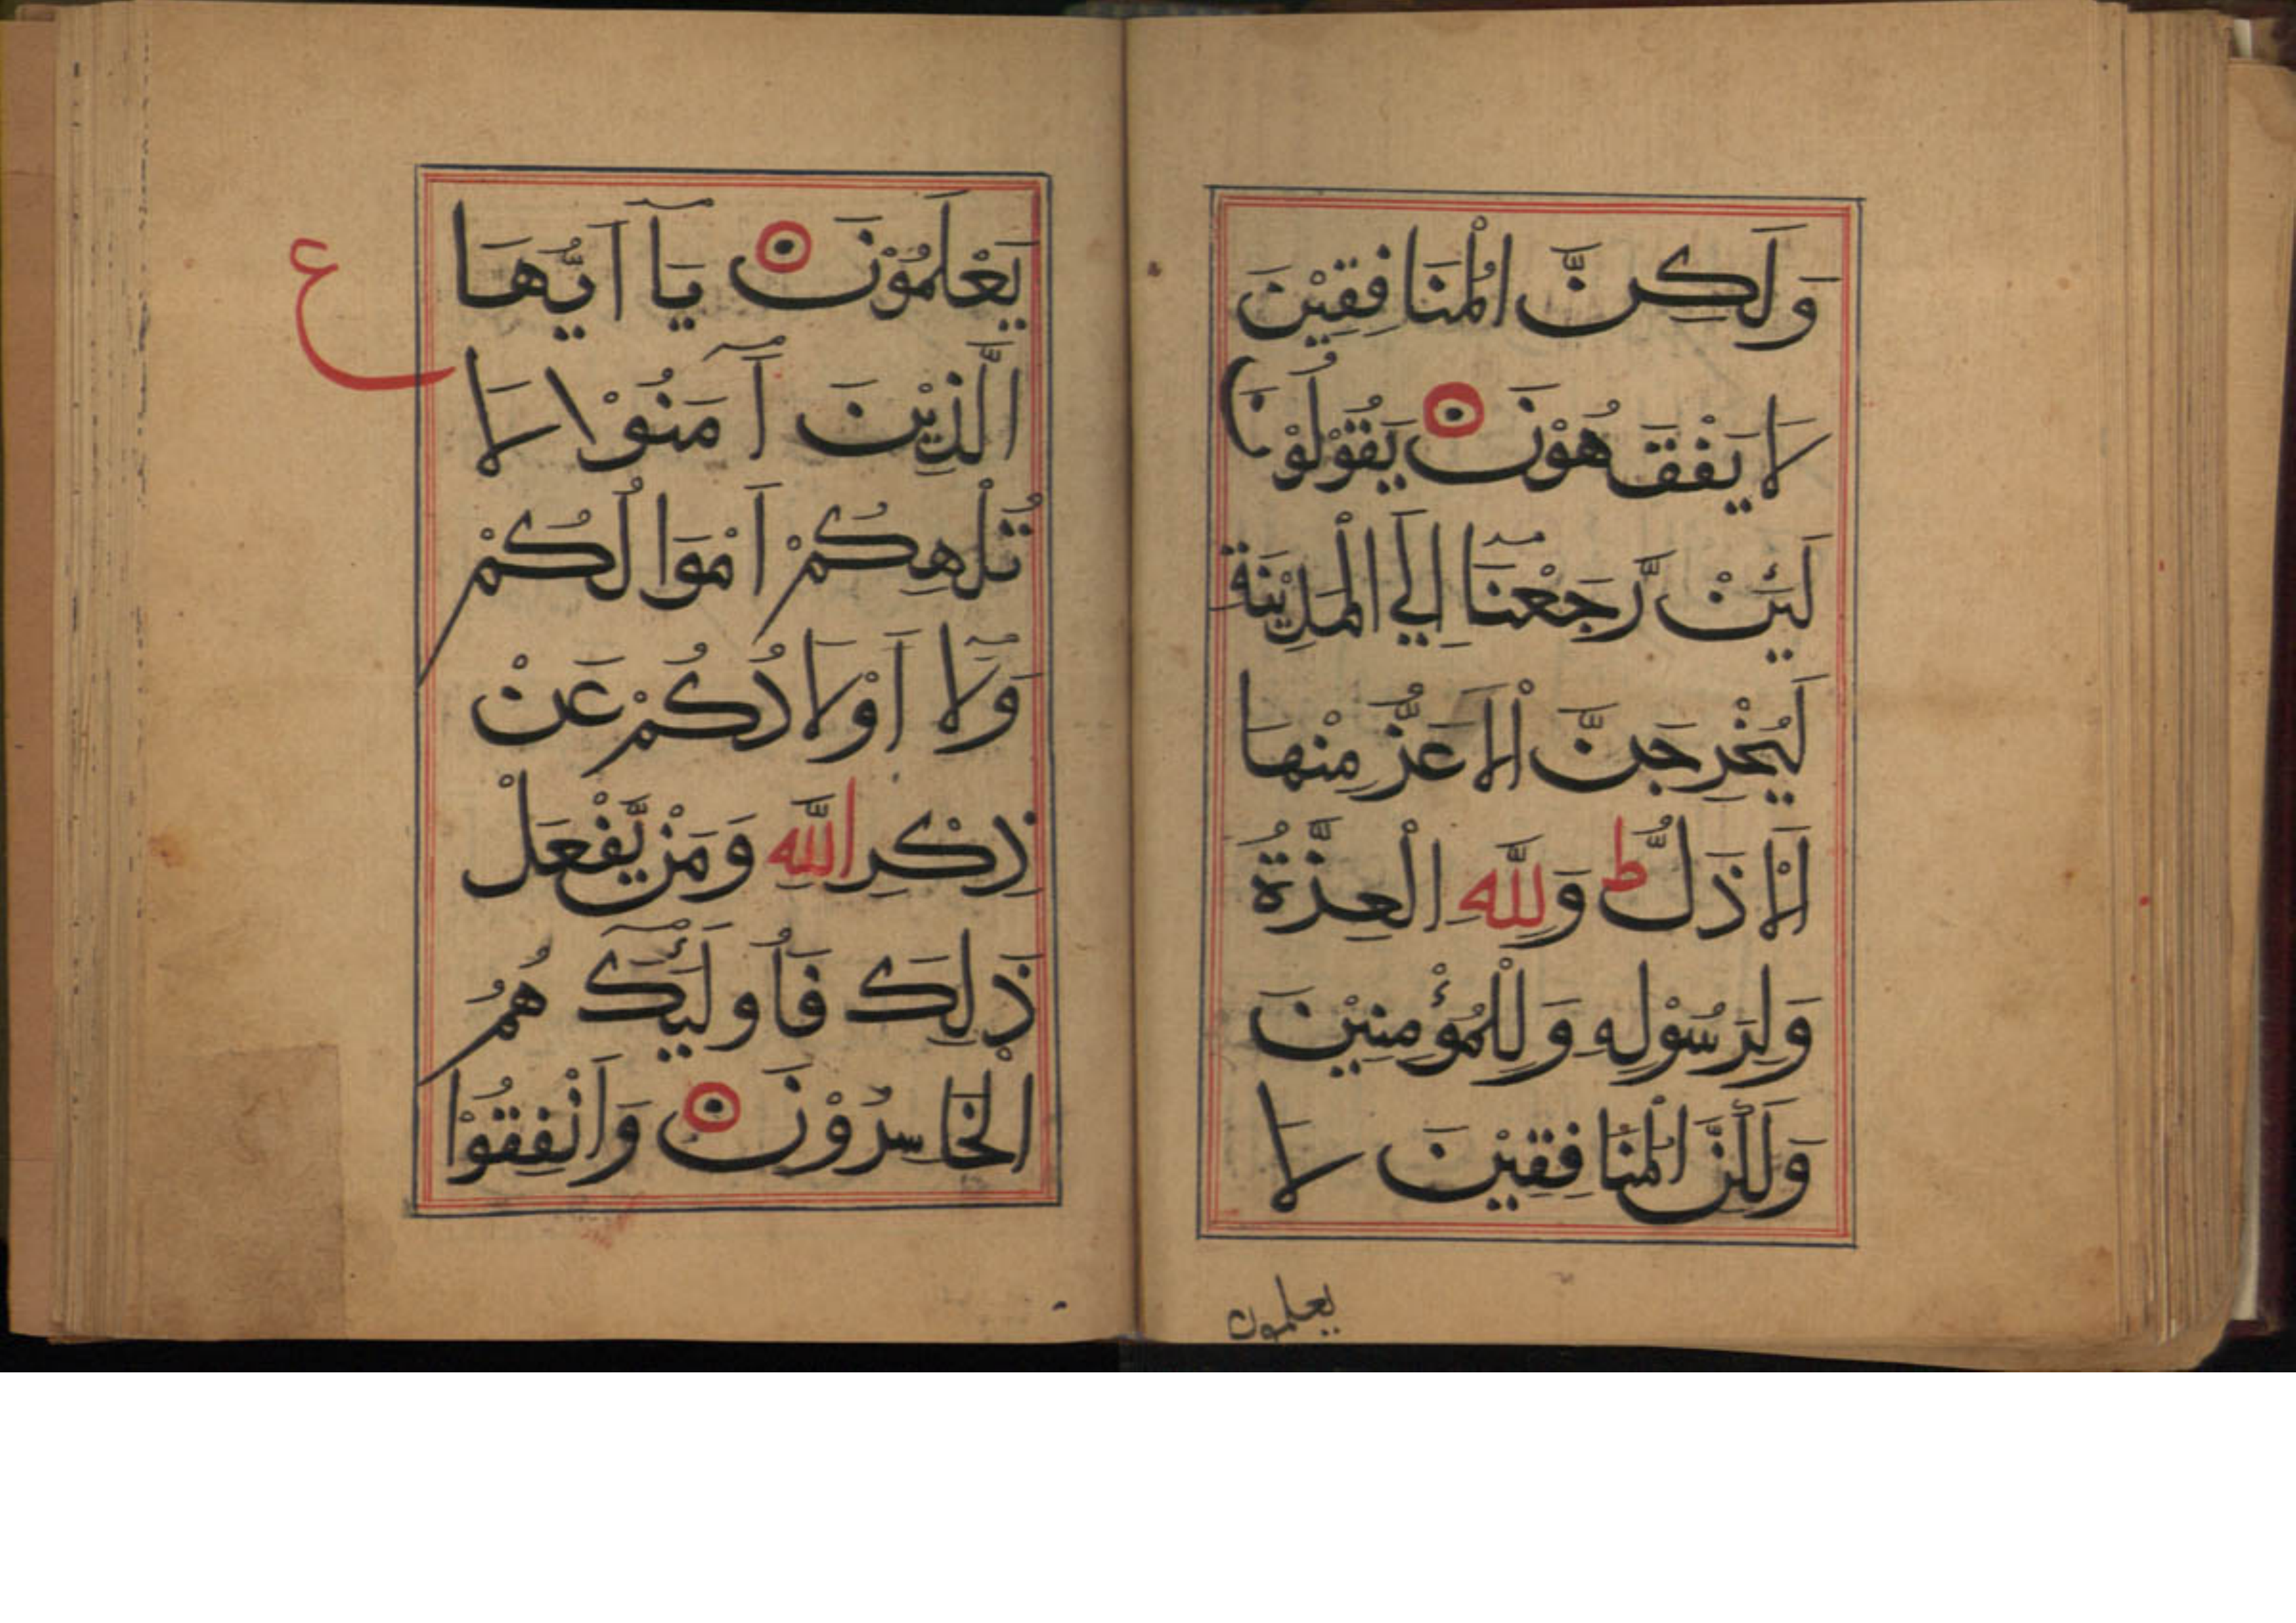 وَلَكِنَّ الْمُنَافِقِيْنَ
لَا يَفْقَهُوْنَ يَقُوْلُوْنَ
لَئِنْ رَّجَعْنَآ اِلَي الْمَدِيْنَةِ
لَيُخْرِجَنَّ الْاَعَزُّ مِنْهَا
الْاَذَلَّ ط وَلِلَّهِ الْعِزَّةُ
وَلِرَسُوْلِهِ وَلِلْمُؤْمِنِيْنَ
وَلَكِنَّ الْمُنَافِقِيْنَ لَا
يعلمون
يَعْلَمُوْنَ يَآ اَيُّهَا
ع
الَّذِيْنَ آمَنُوْا لَا
تُلْهِكُمْ اَمْوَالُكُمْ
وَلَآ اَوْلَادُكُمْ عَنْ
ذِكْرِ اللَّهِ وَمَنْ يَّفْعَلْ
ذَلِكَ فَاُولَئِكَ هُمُ
الْخَاسِرُوْنَ وَاَنْفِقُوْا